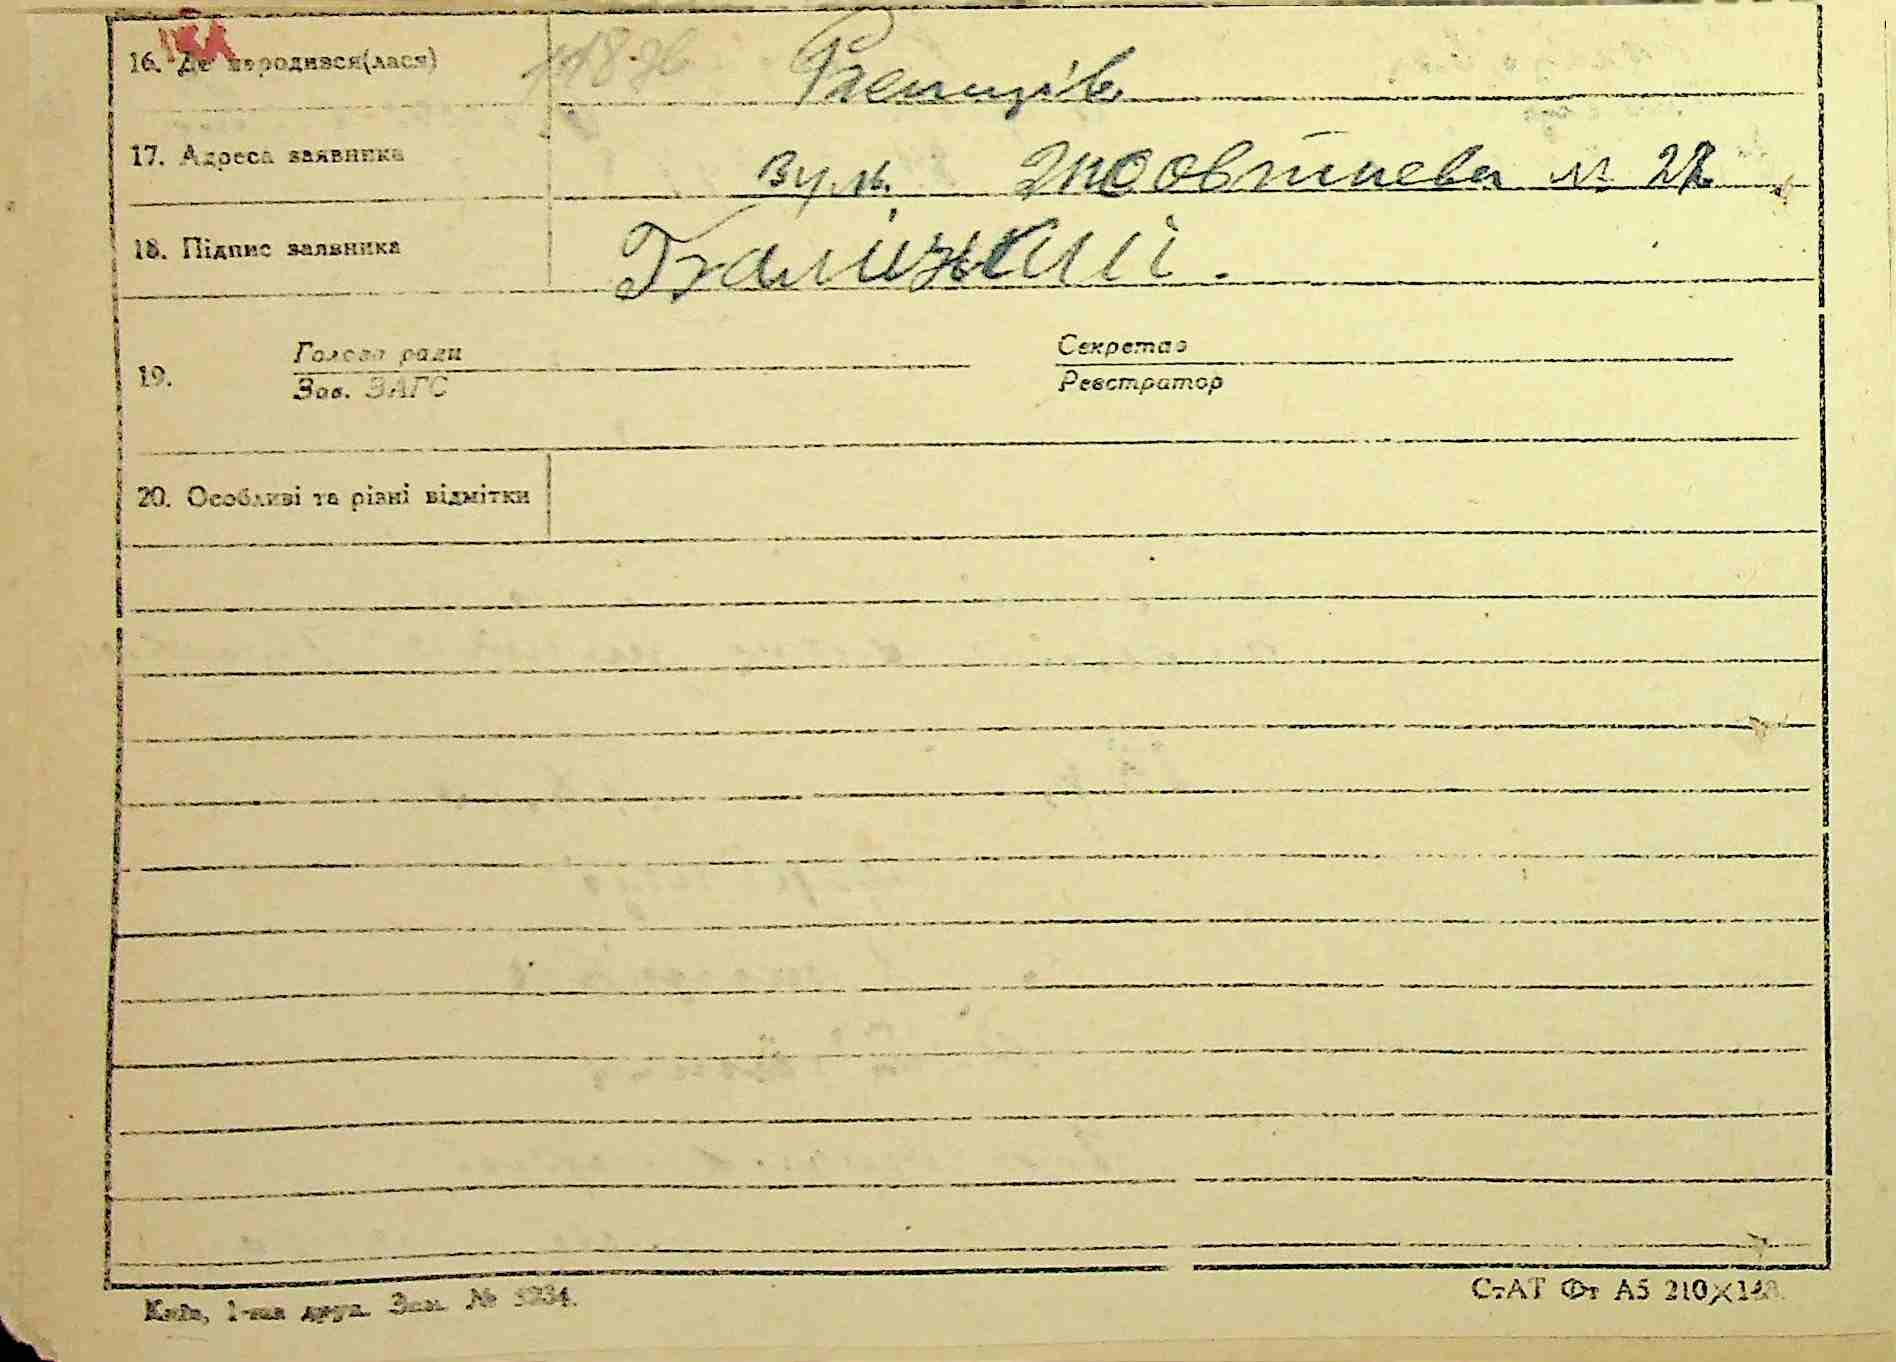 16. Де народився(лася)
17. Адреса заявника вул. Жовтнева № 22
18. Підпис заявника
19. Голова ради Секретар
Зав. ЗАГС Реєстратор
20. Особливі та різні відмітки
Київ, 1-ша друк. Зам. № 5234.
СтАТ Фт А5 210×148.